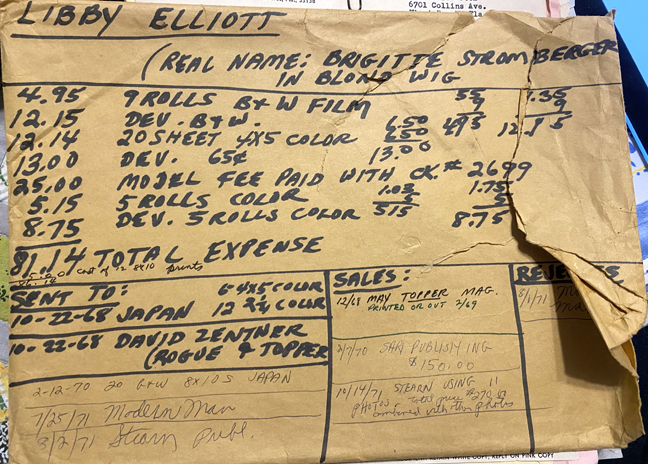 6701 Collins Ave.
LIBBY ELLIOTT
(REAL NAME: BRIGITTE STROMBERGER
IN BLOND WIG
4.95 9 ROLLS B+W FILM 55 1.35
12.15 DEV. B+W. 9 9
12.14 20 SHEET 4X5 COLOR 6.50 495 12.15
13.00 DEV. 65¢ 6.50 13.00
25.00 MODEL FEE PAID WITH CK.# 2699
5.15 5 ROLLS COLOR 1.03 1.75
8.75 DEV. 5 ROLLS COLOR 5 515 5 8.75
81.14 TOTAL EXPENSE
cost of 12 8X10 prints
SENT TO: 6-4X5 COLOR
10-22-68 JAPAN 12 2¼ COLOR
10-22-68 DAVID ZENTNER
(ROGUE & TOPPER
2-12-70 20 B+W 8X10S JAPAN
7/25/71 Modern Man
8/2/71 Stearn Publ.
SALES:
12/68 MAY TOPPER MAG.
PRINTED OR OUT 2/69
2/7/70 PUBLISHING
$150.00
10/14/71 STEARN USING 11
PHOTOS
combined with other photos
8/1/71
REPLY ON PINK COPY